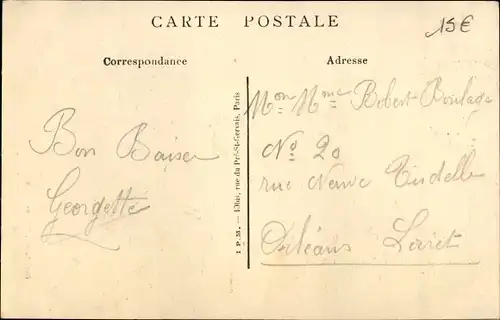 CARTE POSTALE
15€
Correspondance
Adresse
Mon Mme Robert Boulage
Bon Baiser
Georgette
No 20
rue Neuve Tudelle
Orléans Loiret
I. P. 35. — L'Hoir, rue du Pré-St-Gervais, Paris